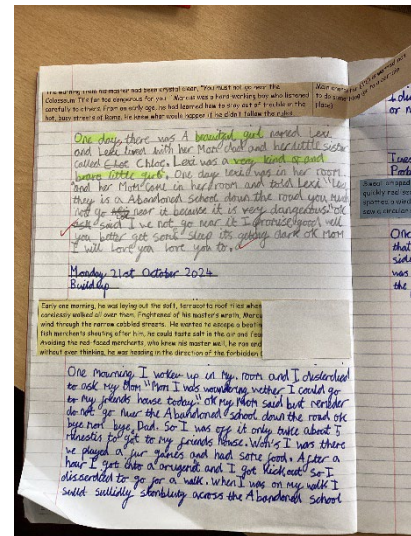 The warning from his master had been crystal clear, "You must not go near the
Colosseum. It's far too dangerous for you." Marcus was a hard-working boy who listened
carefully to others. From an early age, he had learned how to stay out of trouble in the
hot, busy streets of Rome. He knew what would happen if he didn't follow the rules.
Main
to do some
place)
One day, there was A beautiful girl named Lexi
and Lexi lived with her Mom dad and her little sister
called Chloe. Lexi was a very kind and
brave little girl. One day lexi was in her room
and her Mom came in her room and told Lexi "Lexi
they is a Abandoned school down the road you must
not go near it because it is very dangerous" "ok
said I we not go near it I promise good well
you better get some sleep its geting dark ok Mom
I will love you love you to.
Monday 21st October 2024
Build up
Early one morning, he was laying out the soft, terracotta roof tiles when
carelessly walked all over them. Frightened of his master's wrath, Marcu
wind through the narrow cobbled streets. He wanted to escape a beatin
fish merchants shouting after him, he could taste salt in the air and
Avoiding the red-faced merchants, who knew his master well, he ran and
without even thinking, he was heading in the direction of the forbidden
One mourning I woken up in my room and I
to ask my Mom "Mom I was woundering wether I could go
to my friends house today" ok My Mom said but remeder
do not go near the Abandoned school down the road ok
bye mom bye Dad. So I was off it only twice about 5
to get to my friends house. I was there
we played a fur games and had some food. After a
hour I got into a and I got kick out so I
to go for a walk. When I was on my walk I
across the Abandoned school